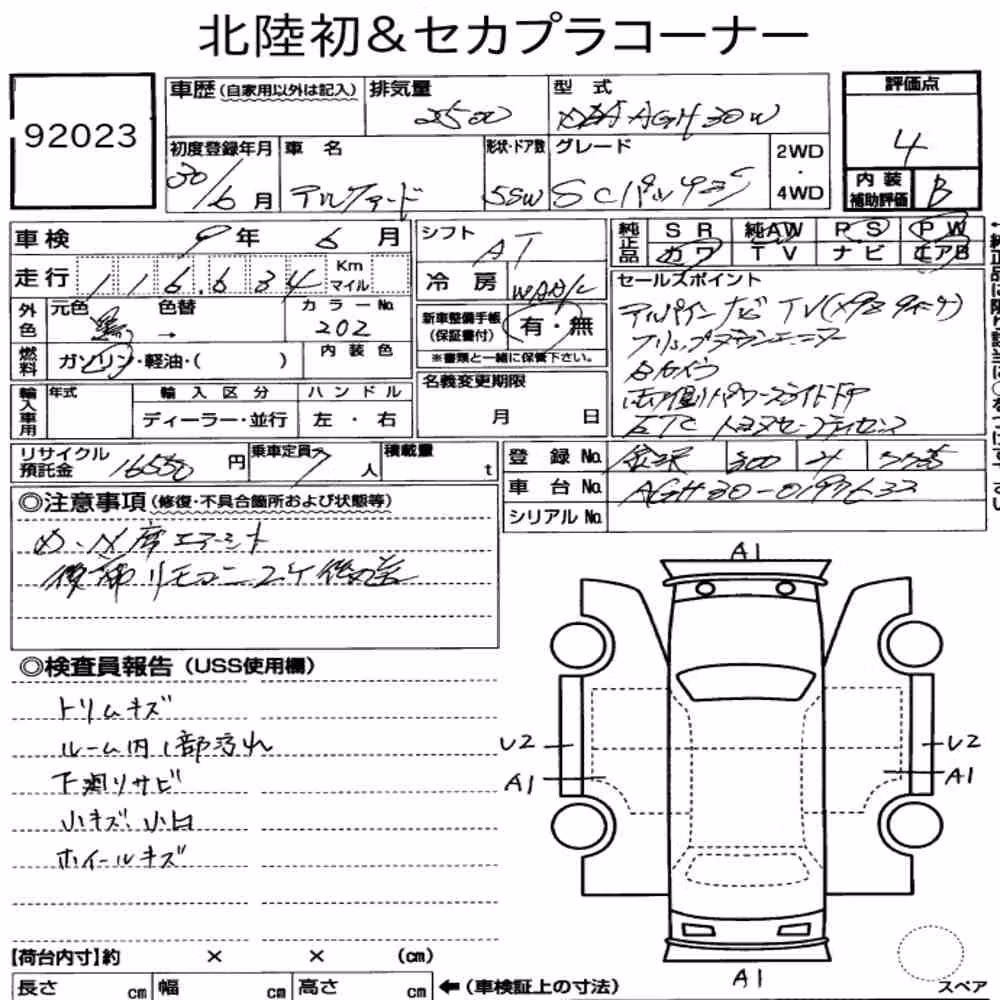 北陸初＆セカプラコーナー
92023
車歴(自家用以外は記入)
排気量
2500
型式
AGH30W
評価点
4
初度登録年月
30/6月
車名
アルファード
形状・ドア数
5SW
グレード
SCパッケージ
2WD
・
4WD
内装
補助評価
B
車検 9年 6月
シフト
AT
純正品
SR 純AW PS PW
カワ TV ナビ エアB
走行 116,634 Km マイル
冷房
WAA/C
セールスポイント
アルパインナビ TV
フリップダウンモニター
両側パワースライドドア
ETC トヨタセーフティセンス
外色
元色 黒 色替 →
カラーNo
202
新車整備手帳
(保証書付)
有・無
※書類と一緒に保管下さい。
燃料
ガソリン・軽油・( )
内装色
輸入車用
年式
輸入区分
ハンドル
ディーラー・並行
左・右
名義変更期限
月 日
リサイクル
預託金
16550円
乗車定員 7人
積載量
t
登録No. 金沢 300
車台No. AGH30-
シリアルNo.
◎注意事項(修復・不具合箇所および状態等)
エアーシート
リモコン
後送
◎検査員報告(USS使用欄)
トリムキズ
ルーム内1部汚れ
下廻リサビ
小キズ、小凹
ホイールキズ
A1
U2
A1
U2
A1
A1
【荷台内寸】約 × × (cm)
長さ cm 幅 cm 高さ cm
←(車検証上の寸法)
スペア